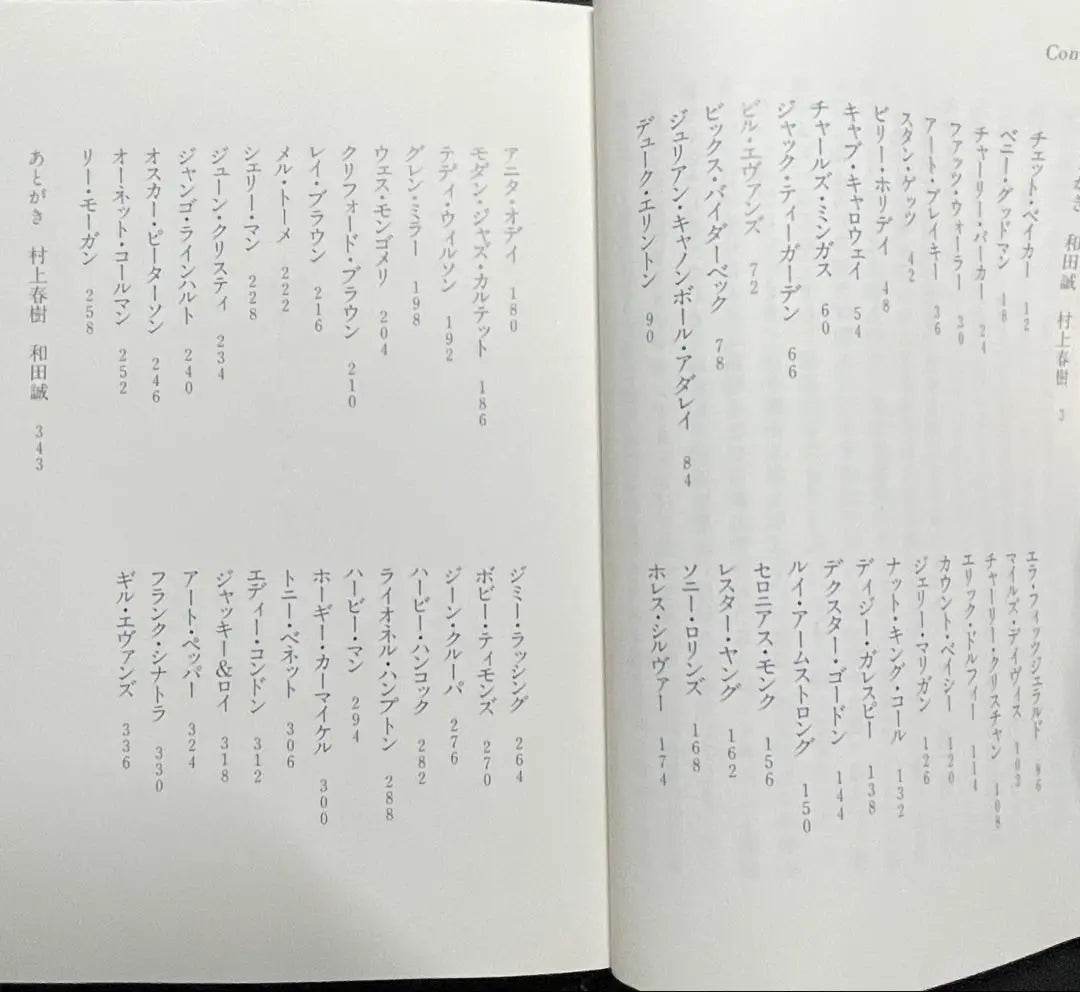 Con
がき 和田誠 村上春樹 3
チェット・ベイカー 12
ベニー・グッドマン 18
チャーリー・パーカー 24
ファッツ・ウォーラー 30
アート・ブレイキー 36
スタン・ゲッツ 42
ビリー・ホリデイ 48
キャブ・キャロウェイ 54
チャールズ・ミンガス 60
ジャック・ティーガーデン 66
ビル・エヴァンズ 72
ビックス・バイダーベック 78
ジュリアン・キャノンボール・アダレイ 84
デューク・エリントン 90
エラ・フィッツジェラルド 96
マイルズ・デイヴィス 103
チャーリー・クリスチャン 108
エリック・ドルフィー 114
カウント・ベイシー 120
ジェリー・マリガン 126
ナット・キング・コール 132
ディジー・ガレスピー 138
デクスター・ゴードン 144
ルイ・アームストロング 150
セロニアス・モンク 156
レスター・ヤング 162
ソニー・ロリンズ 168
ホレス・シルヴァー 174
アニタ・オデイ 180
モダン・ジャズ・カルテット 186
テディ・ウィルソン 192
グレン・ミラー 198
ウェス・モンゴメリ 204
クリフォード・ブラウン 210
レイ・ブラウン 216
メル・トーメ 222
シェリー・マン 228
ジューン・クリスティ 234
ジャンゴ・ラインハルト 240
オスカー・ピーターソン 246
オーネット・コールマン 252
リー・モーガン 258
ジミー・ラッシング 264
ボビー・ティモンズ 270
ジーン・クルーパ 276
ハービー・ハンコック 282
ライオネル・ハンプトン 288
ハービー・マン 294
ホーギー・カーマイケル 300
トニー・ベネット 306
エディー・コンドン 312
ジャッキー&ロイ 318
アート・ペッパー 324
フランク・シナトラ 330
ギル・エヴァンズ 336
あとがき 村上春樹 和田誠 343